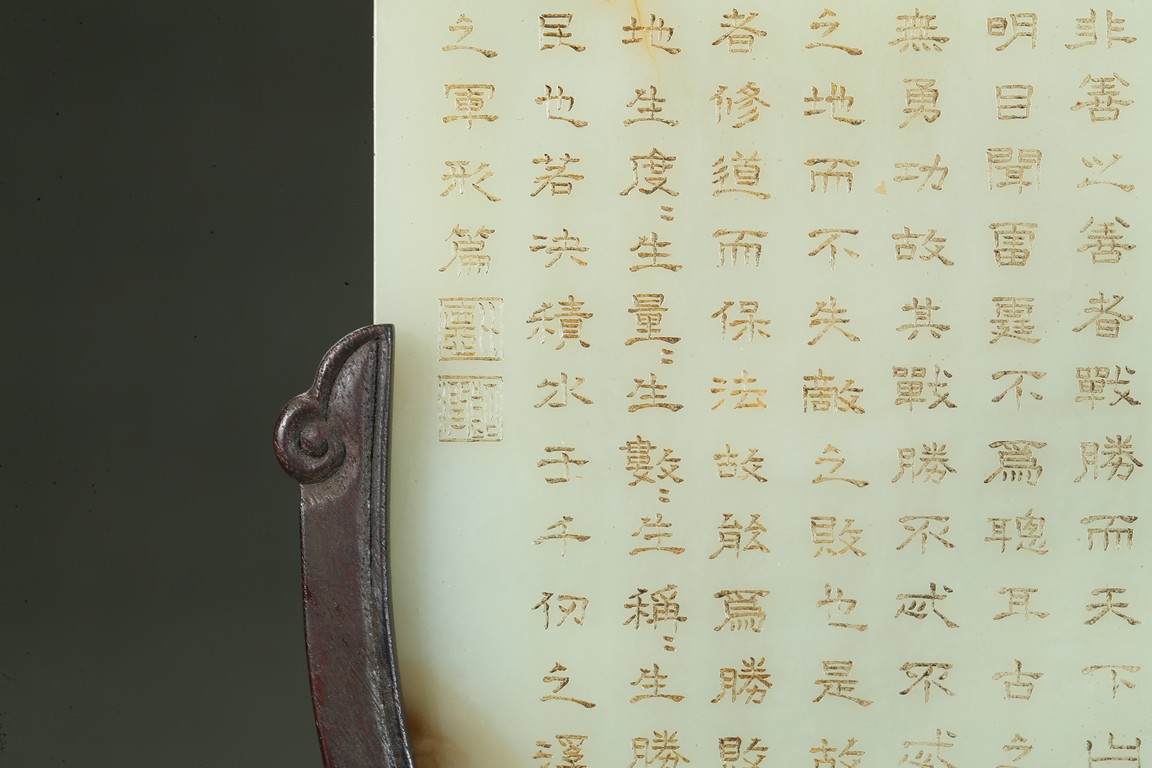 非善之善者戰勝而天下
明目聞雷霆不爲聰耳古之
無勇功故其戰勝不忒不忒
之地而不失敵之敗也是故
者修道而保法故能爲勝敗
地生度〻生量〻生數〻生稱〻生勝
民也若決積水于千仞之
之軍形篇